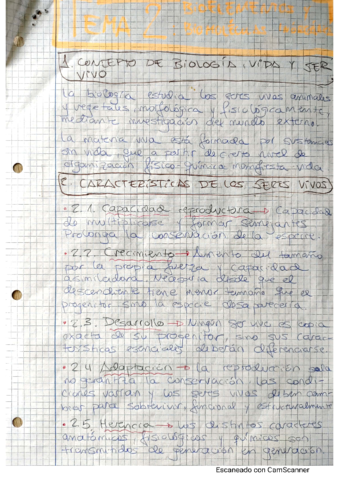 TEMA 2
1. CONCEPTO DE BIOLOGÍA, VIDA Y SER
VIVO
La biología estudia los seres vivos animales
y vegetales, morfológica y fisiológicamente,
mediante investigación del mundo externo.
La materia viva está formada por sustancias
sin vida que a partir de cierto nivel de
organización físico química manifiesta vida
2. CARACTERÍSTICAS DE LOS SERES VIVOS
• 2.1. Capacidad reproductora → Capacidad
de multiplicarse y formar semejantes
Prolonga la conservación de la especie.
• 2.2. Crecimiento → Aumento del tamaño
por la propia fuerza y capacidad
asimiladora necesaria desde que el
descendiente tiene menor tamaño que el
progenitor sino la especie desaparecería
• 2.3. Desarrollo → Ningún ser vivo es copia
exacta de su progenitor, sino sus carac-
terísticas esenciales deberán diferenciarse.
• 2.4 Adaptación → la reproducción sola
no garantiza la conservación, las condi-
ciones varían y los seres vivos deben cam-
biar para sobrevivir, funcional y estructuralmente
• 2.5. Herencia → los distintos caracteres
anatómicos, fisiológicos y químicos son
transmitidos de generación en generación.
Escaneado con CamScanner